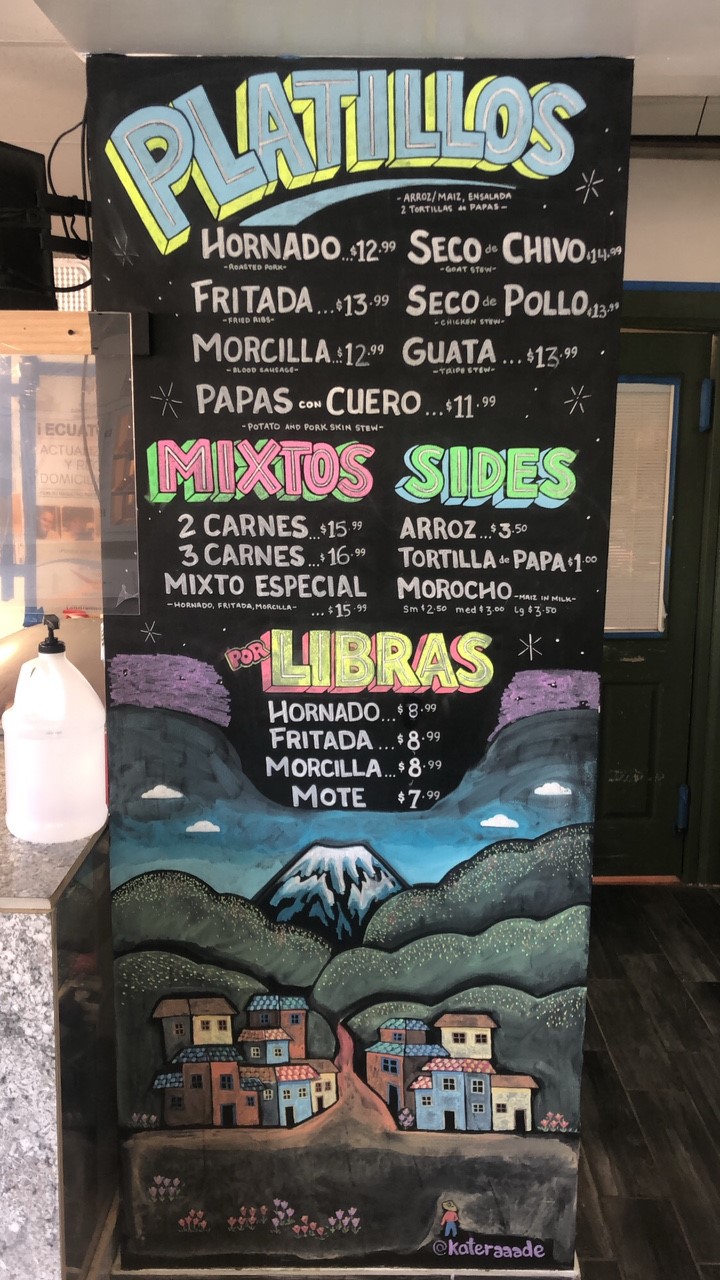 PLATILLOS
- ARROZ/MAIZ, ENSALADA
2 TORTILLAS de PAPAS -
HORNADO...$12.99
- ROASTED PORK-
SECO de CHIVO.$14.99
-GOAT STEW-
FRITADA...$13.99
-FRIED RIBS-
SECO de POLLO.$13.99
-CHICKEN STEW-
MORCILLA...$12.99
-BLOOD SAUSAGE-
GUATA ... $13.99
-TRIPE STEW-
PAPAS CON CUERO ...$11.99
-POTATO AND PORK SKIN STEW-
MIXTOS
2 CARNES...$15.99
3 CARNES...$16.99
MIXTO ESPECIAL
-HORNADO, FRITADA, MORCILLA- ...$15.99
SIDES
ARROZ...$3.50
TORTILLA de PAPA $1.00
MOROCHO -MAIZ IN MILK-
Sm $2.50 med $3.00 Lg $3.50
POR LIBRAS
HORNADO...$8.99
FRITADA...$8.99
MORCILLA...$8.99
MOTE $7.99
@kateraaade
ACTUALI
Y RE
DOMICIL